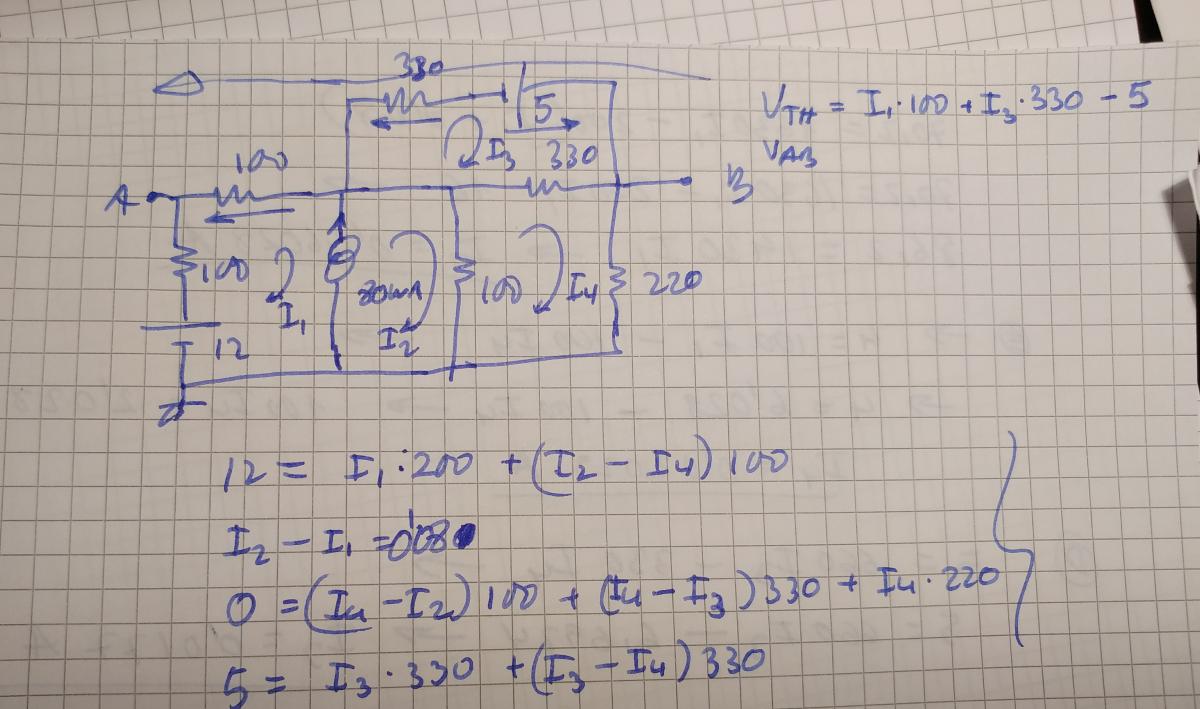 330
5
I₃
330
100
A
B
100
I₁
80mA
I₂
100
I₄
220
12
V_TH = I₁·100 + I₃·330 - 5
V_AB
12 = I₁·200 + (I₂ - I₄)100
I₂ - I₁ = 0'080
0 = (I₄ - I₂)100 + (I₄ - I₃)330 + I₄·220
5 = I₃·330 + (I₃ - I₄)330